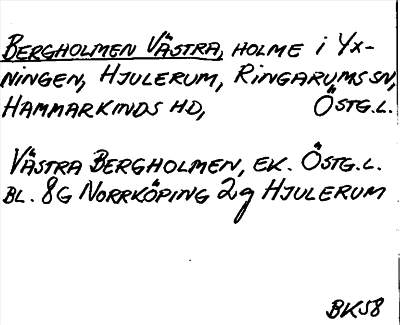 BERGHOLMEN VÄSTRA, HOLME i YX-
NINGEN, HJULERUM, RINGARUMS SN,
HAMMARKINDS HD, ÖSTG.L.
VÄSTRA BERGHOLMEN, EK. ÖSTG.L.
BL. 8G NORRKÖPING 2g HJULERUM
BK58